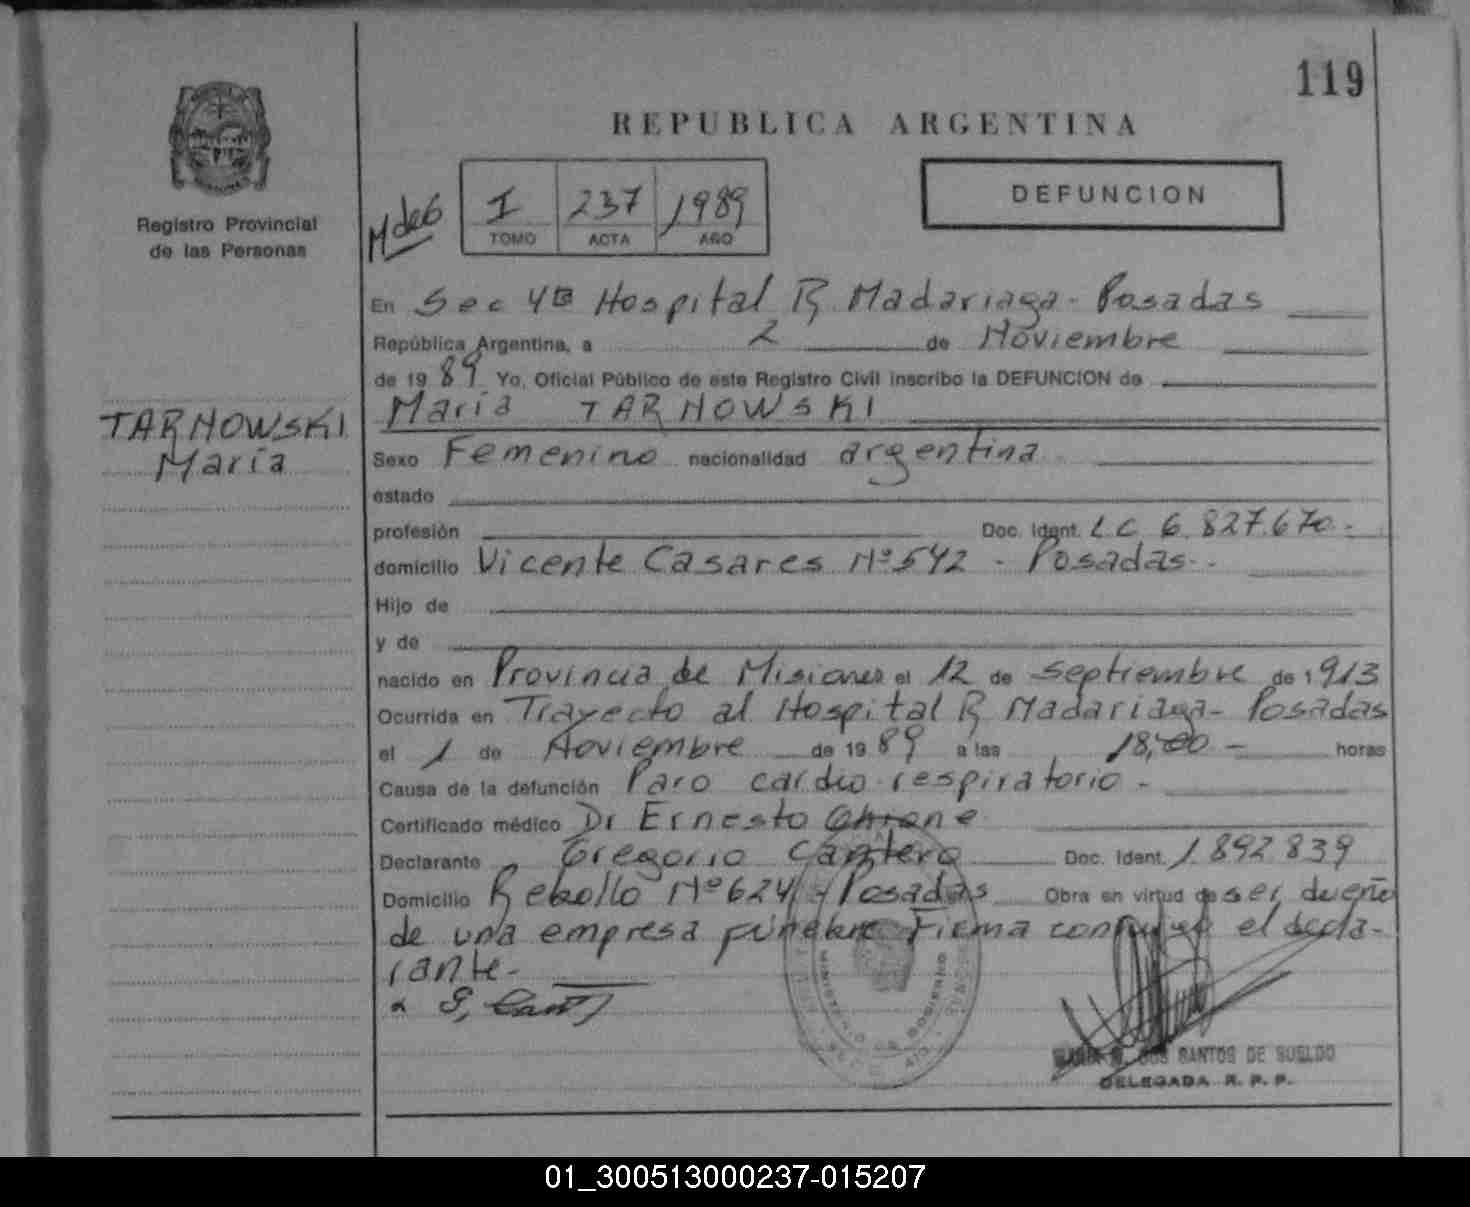 119
REPUBLICA ARGENTINA
DEFUNCION
Registro Provincial
de las Personas
M de G
I 237 1989
TOMO ACTA AÑO
En Sec 4ta Hospital R Madariaga - Posadas
República Argentina, a 2 de Noviembre
de 1989 Yo, Oficial Público de este Registro Civil inscribo la DEFUNCION de
María TARNOWSKI
TARNOWSKI
María
Sexo Femenino nacionalidad argentina
estado
profesión Doc. Ident. L C 6.827.670.-
domicilio Vicente Casares Nº 542 - Posadas.-
Hijo de
y de
nacido en Provincia de Misiones el 12 de septiembre de 1913
Ocurrida en Trayecto al Hospital R Madariaga - Posadas
el 1 de Noviembre de 1989 a las 18,00 - horas
Causa de la defunción Paro cardio-respiratorio -
Certificado médico Dr Ernesto
Declarante Gregorio Cantero Doc. Ident. 1.892.839
Domicilio Rebollo Nº 624 - Posadas Obra en virtud de ser dueño
de una empresa fúnebre Firma conmigo el decla-
rante.-
DOS SANTOS DE SUELDO
DELEGADA R. P. P.
01_300513000237-015207